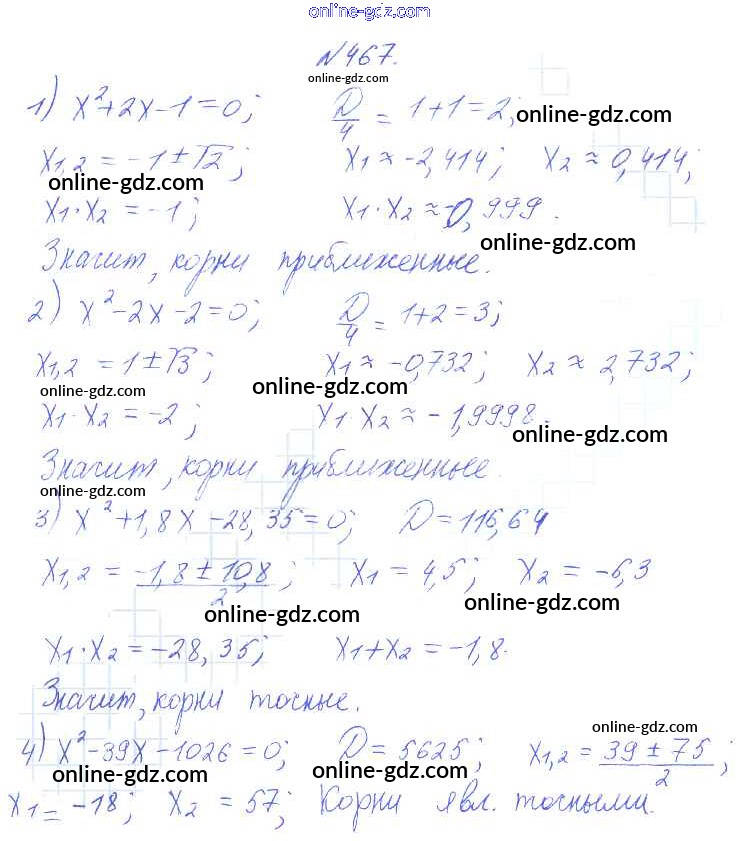 online-gdz.com
№467.
online-gdz.com
1) x²+2x-1=0; D/4 = 1+1=2; online-gdz.com
x₁,₂ = -1±√2; x₁≈-2,414; x₂≈0,414;
online-gdz.com
x₁·x₂ = -1; x₁·x₂≈-0,999.
online-gdz.com
Значит, корни приближенные.
2) x²-2x-2=0; D/4 = 1+2=3;
x₁,₂ = 1±√3; x₁≈-0,732; x₂≈2,732;
online-gdz.com online-gdz.com
x₁·x₂ = -2; x₁·x₂≈-1,9998.
online-gdz.com
Значит, корни приближенные.
online-gdz.com
3) x²+1,8x-28,35=0; D=116,64
x₁,₂ = (-1,8±10,8)/2; x₁=4,5; x₂=-6,3
online-gdz.com online-gdz.com
x₁·x₂=-28,35; x₁+x₂=-1,8.
Значит, корни точные.
online-gdz.com
4) x²-39x-1026=0; D=5625; x₁,₂ = (39±75)/2;
online-gdz.com online-gdz.com
x₁=-18; x₂=57; Корни явл. точными.